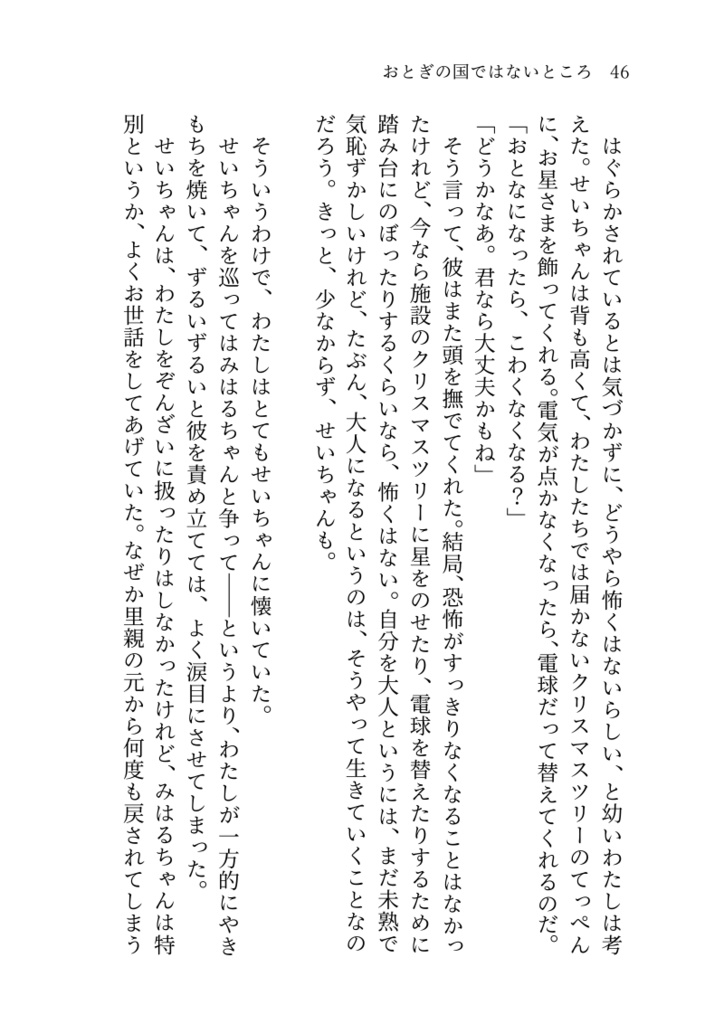 おとぎの国ではないところ 46
はぐらかされているとは気づかずに、どうやら怖くはないらしい、と幼いわたしは考
えた。せいちゃんは背も高くて、わたしたちでは届かないクリスマスツリーのてっぺん
に、お星さまを飾ってくれる。電気が点かなくなったら、電球だって替えてくれるのだ。
「おとなになったら、こわくなくなる？」
「どうかなあ。君なら大丈夫かもね」
そう言って、彼はまた頭を撫でてくれた。結局、恐怖がすっきりなくなることはなかっ
たけれど、今なら施設のクリスマスツリーに星をのせたり、電球を替えたりするために
踏み台にのぼったりするくらいなら、怖くはない。自分を大人というには、まだ未熟で
気恥ずかしいけれど、たぶん、大人になるというのは、そうやって生きていくことなの
だろう。きっと、少なからず、せいちゃんも。
そういうわけで、わたしはとてもせいちゃんに懐いていた。
せいちゃんを巡ってはみはるちゃんと争って――というより、わたしが一方的にやき
もちを焼いて、ずるいずるいと彼を責め立てては、よく涙目にさせてしまった。
せいちゃんは、わたしをぞんざいに扱ったりはしなかったけれど、みはるちゃんは特
別というか、よくお世話をしてあげていた。なぜか里親の元から何度も戻されてしまう